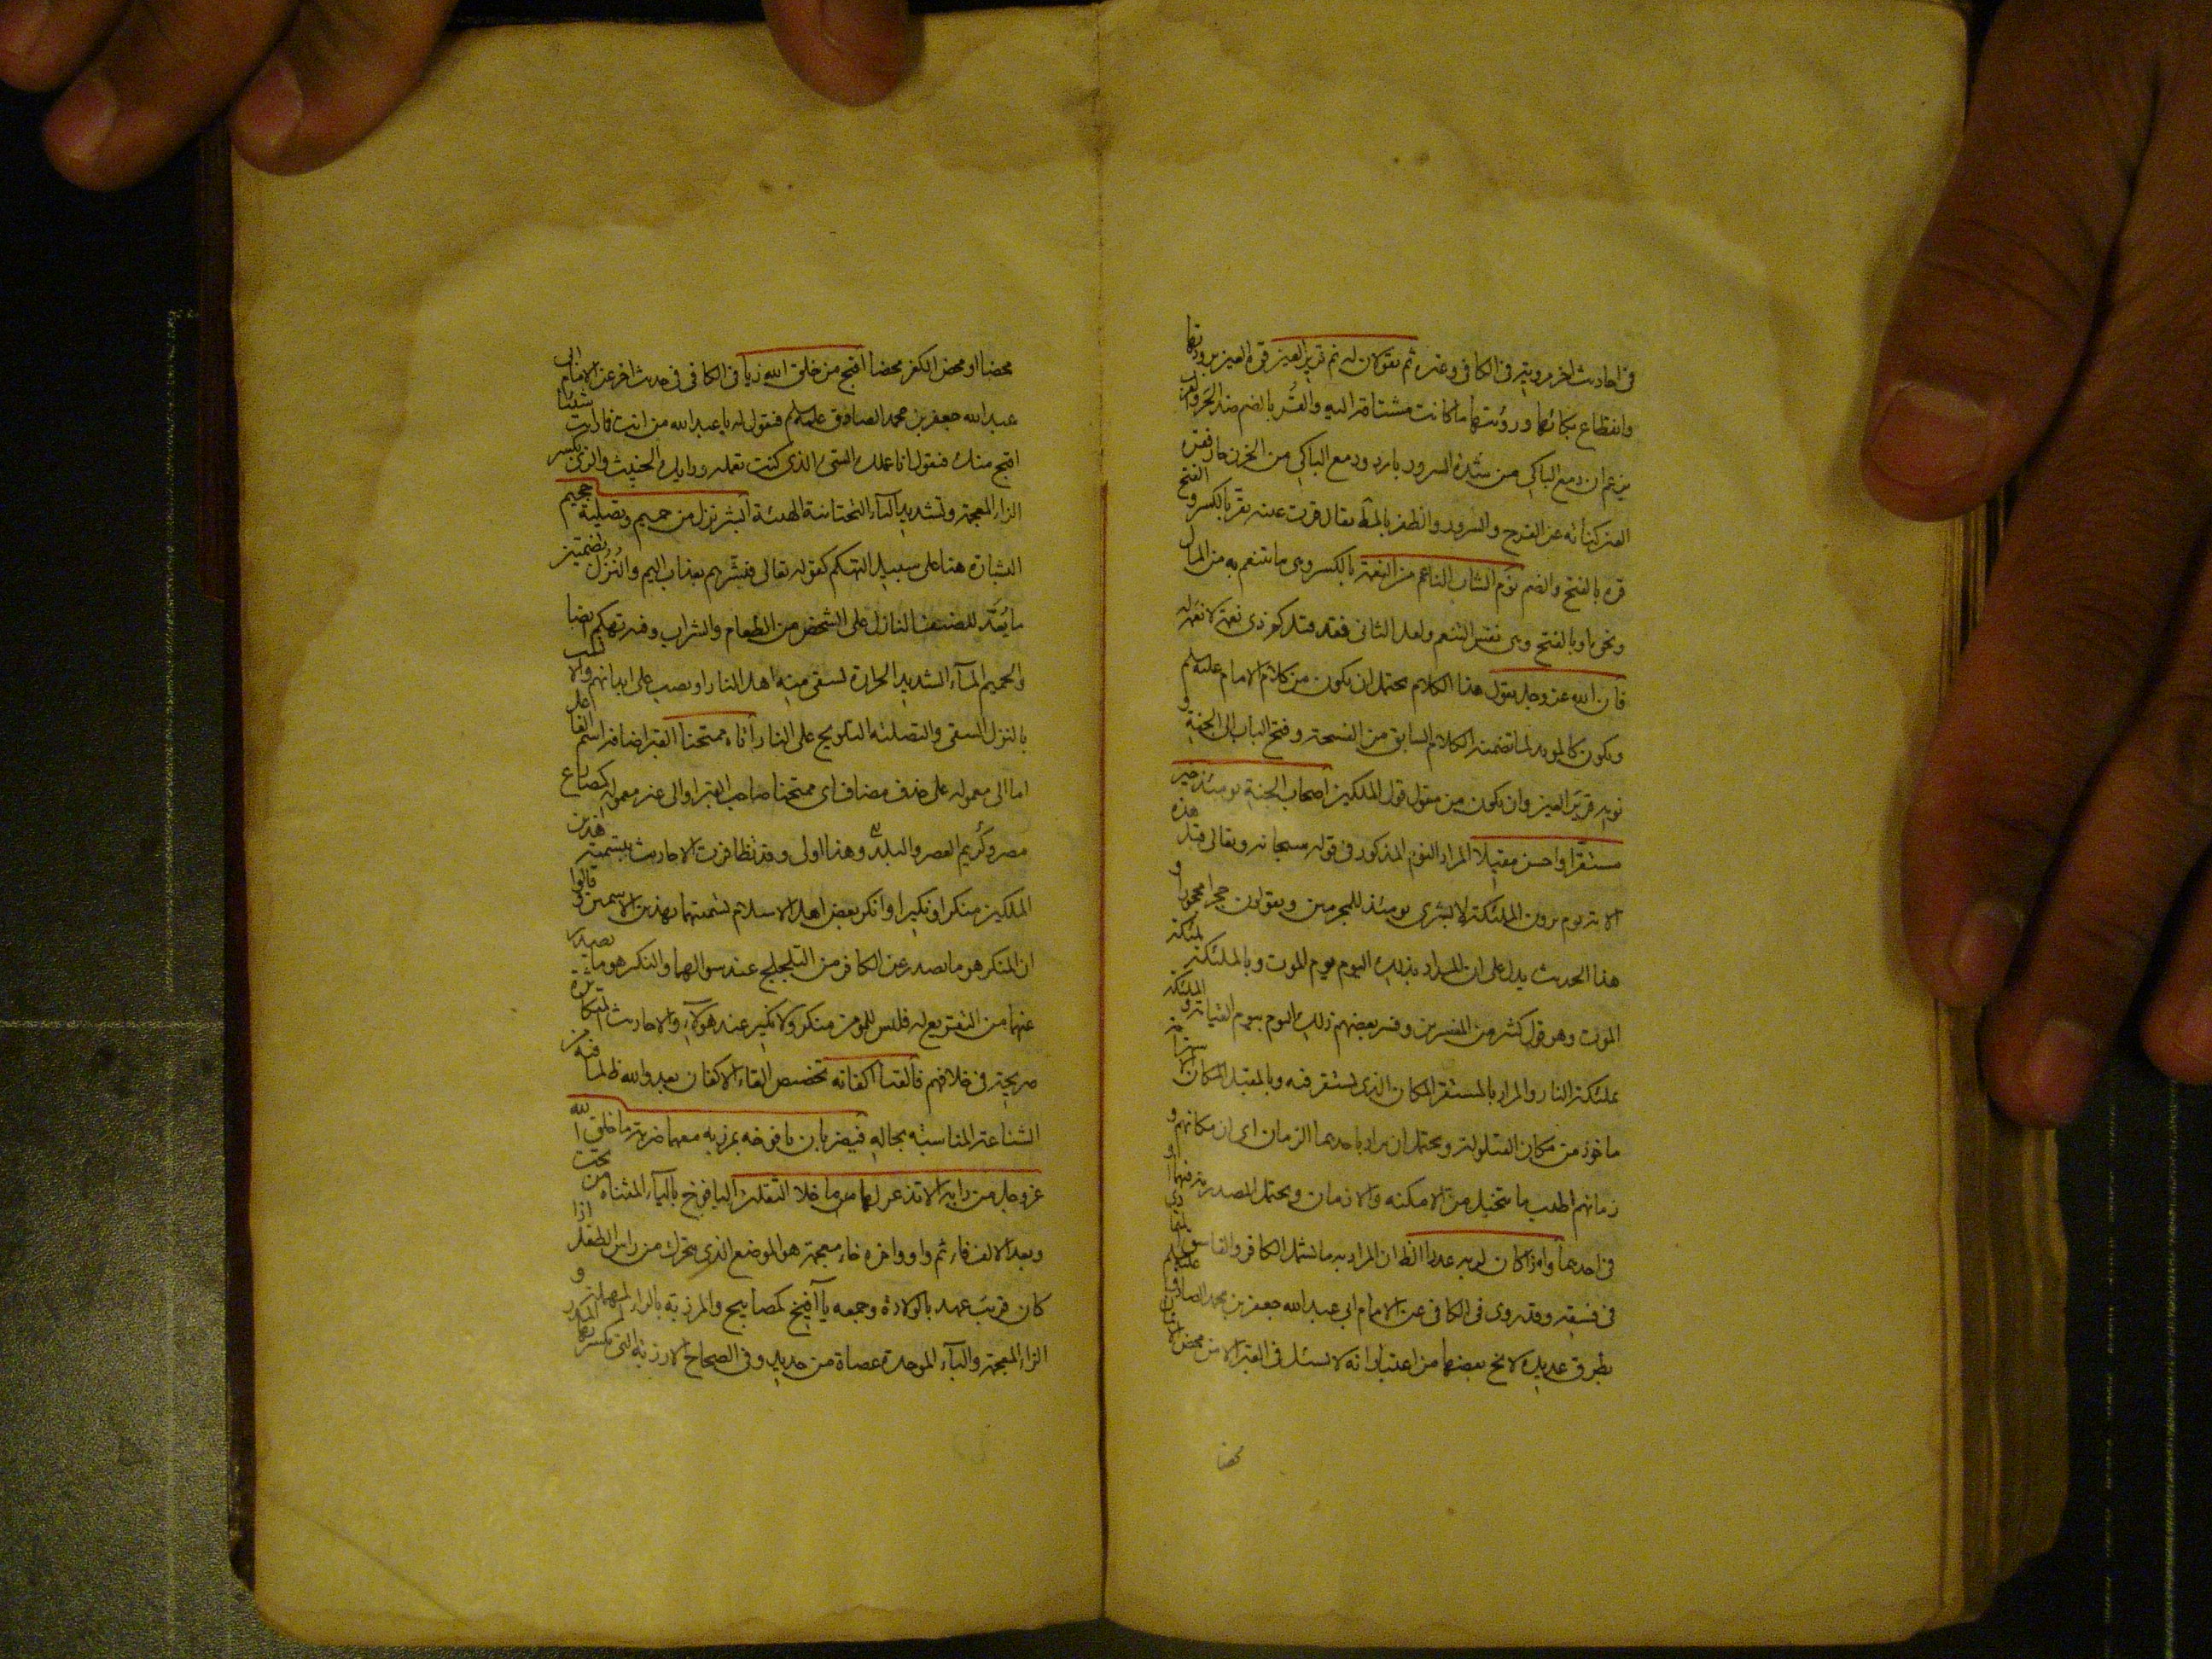 فى احاديث اخر مروية فى الكافى وغيره ثم يقولان له نم قرير العين قرة العين برودتها
وانقطاع بكائها ورؤيتها ما كانت مشتاقة اليه والقُر بالضم ضد الحر والعرب
يزعم ان دمع الباكى من شدة السرور بارد ودمع الباكى من الحزن حار فقرة
العين كناية عن الفرح والسرور والظفر بالمط يقال قرت عينه تقر بالكسر والفتح
قرة بالفتح والضم نوم الشاب الناعم من النعمة بالكسر وهى ما يتنعم به من المال
ونحوه او بالفتح وهى نفس التنعم ولعل الثانى فقد قيل كم ذى نعمة لا نعمة له
فان الله عز وجل يقول هذا الكلام يحتمل ان يكون من كلام الامام عليه السلم
ويكون كالمويد لما تضمنه الكلام السابق من الفسحة وفتح الباب الى الجنة و
نومه قرير العين وان يكون من مقول قول الملكين اصحاب الجنة يومئذ خير
مستقرا واحسن مقيلا المراد اليوم المذكور فى قوله سبحانه وتعالى قبل هذه
الاية يوم يرون الملئكة لا بشرى يومئذ للمجرمين ويقولون حجرا محجورا و
هذا الحديث يدل على ان المراد بذلك اليوم يوم الموت وبالملئكة ملئكة
الموت وهو قول كثير من المفسرين وفسر بعضهم ذلك اليوم بيوم القيامة والملئكة
بملئكة النار والمراد بالمستقر المكان الذى يستقر فيه وبالمقيل المكان
ماخوذ من مكان القيلولة ويحتمل ان يراد باحدهما الزمان اى ان مكانهم و
زمانهم اطيب ما يتخيل من الامكنة والازمان ويحتمل المصدرية فيهما او
فى احدهما واذا كان لربه عدوا الظ ان المراد به ما يشمل الكافر والفاسق
فى فسقه وقد روى فى الكافى عن الامام ابى عبد الله جعفر بن محمد الصادق عليه السلم
بطرق عديدة لا يخ بعضها من اعتبار انه لا يسئل فى القبر الا من محض الايمان
محضا
محضا او محض الكفر محضا اقبح من خلق الله زيا فى الكافى فى حديث اخر عن الامام ابى
عبد الله جعفر بن محمد الصادق عليه السلم فيقول له يا عبد الله من انت فما رايت شيئا
اقبح منك فيقول انا عملك السئ الذى كنت تعمله ورايك الخبيث والزى بكسر
الزاء المعجمة وتشديد الياء التحتانية الهيئة ابشر بنزل من حميم وتصلية جحيم
البشارة هنا على سبيل التهكم كقوله تعالى فبشرهم بعذاب اليم والنُزُل بضمتين
ما يُعَدّ للضيف النازل على الشخص من الطعام والشراب وفيه تهكم ايضا
والحميم الماء الشديد الحرارة يسقى منه اهل النار او يصب على ابدانهم والا
بالنزل السقى والتصلية التلويح على النار اتاه ممتحنا القبر اضافة اسم الفاعل
اما الى معموله على حذف مضاف اى ممتحنا صاحب القبر او الى غير معموله كمصارع
مصر وكريم العصر والبلد وهذا اولى وقد تظافرت الاحاديث بتسمية هذين
الملكين منكرا ونكيرا وانكر بعض اهل الاسلام تسميتهما بهذين الاسمين وقالوا
ان المنكر هو ما يصدر عن الكافر من التلجلج عند سوالهما والنكير هو ما يصدر
عنهما من التقريع له فليس للمومن منكر ولا نكير عند هولآء والاحاديث المتكاثرة
صريحة فى خلافهم فالقيا اكفانه تخصيص القاء الاكفان بعدو الله ظلما فيه من
الشناعة المناسبة بحاله فيضربان يافوخه بمرزبة معهما ضربة ما خلق الله
عز وجل من دابة الا تذعر لها ما خلا الثقلين اليافوخ بالياء المثناة من تحت
وبعد الالف فاء ثم واو واخره خاء معجمة هو الموضع الذى يتحرك من راس الطفل اذا
كان قريب عهد بالولادة وجمعه يآفيخ كمصابيح والمرزبة بالراء المهملة و
الزاء المعجمة والباء الموحدة عصاة من حديد وفى الصحاح الارزبة التى يكسر بها المدر